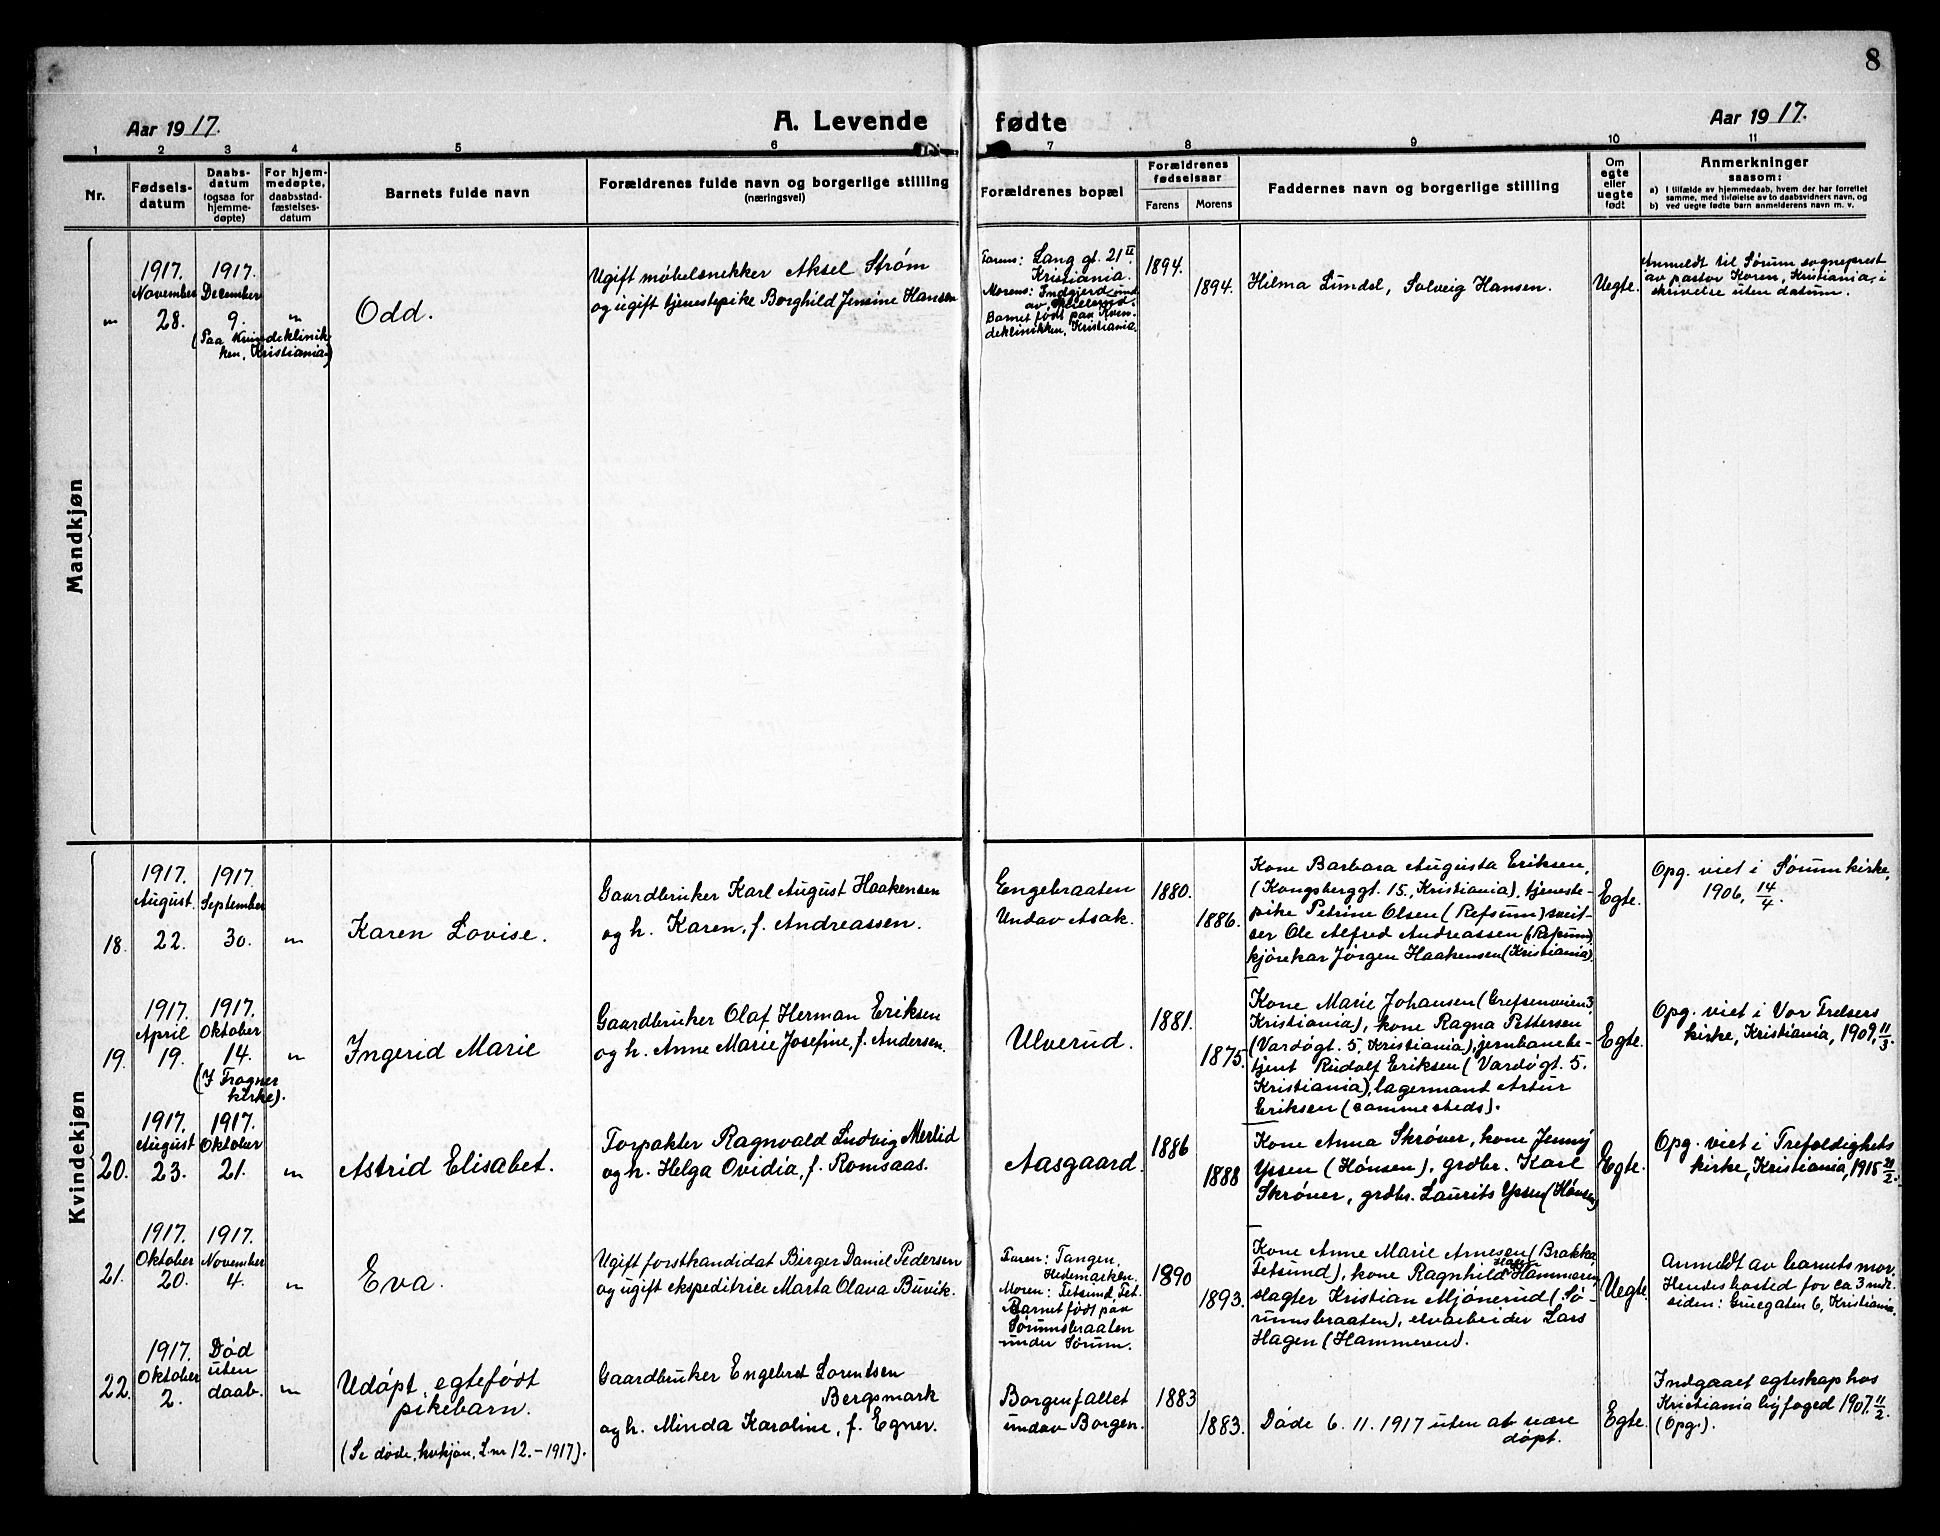 8
Aar 1917.
A. Levende fødte
Aar 1917.
1 2 3 4 5 6 7 8 9 10 11
Nr.
Fødsels-
datum
Daabs-
datum
(ogsaa for
hjemme-
døpte)
For hjem-
medøpte,
daabsstad-
fæstelses-
datum
Barnets fulde navn
Forældrenes fulde navn og borgerlige stilling
(næringsvei)
Forældrenes bopæl
Forældrenes
fødselsaar
Farens Morens
Faddernes navn og borgerlige stilling
Om
egte
eller
uegte
født
Anmerkninger
saasom:
a) I tilfælde av hjemmedaab, hvem der har forrettet
samme, med tilføielse av to daabsvidners navn, og
b) ved uegte fødte barn anmelderens navn m. v.
Mandkjøn
"
1917.
November
28.
1917.
December
9.
(Paa Kvindeklinik-
ken, Kristiania)
"
Odd.
Ugift møbelsnekker Aksel Strøm
og ugift tjenestepike Borghild Jensine Hansen
Farens: Lang gt. 21 II
Kristiania.
Morens: Indgjerd und
av
Barnet født paa Kvin-
deklinikken, Kristiania.
1894.
1894.
Hilma Lundel, Solveig Hansen.
Uegte.
Anmeldt til Sørum sogneprest
av pastor Koren, Kristiania, i
skrivelse uten datum.
Kvindekjøn
18.
1917.
August
22.
1917.
September
30.
"
Karen Lovise.
Gaardbruker Karl August Haakensen
og h. Karen, f. Andreassen.
Engebraaten
Undav Asak.
1880.
1886.
Kone Barbara Augusta Eriksen,
(Kongsberggt. 15, Kristiania), tjeneste-
pike Petrine Olsen (Refsum) sveit-
ser Ole Alfred Andreassen (Refsum),
kjørekar Jørgen Haakensen (Kristiania).
Egte.
Opg. viet i Sørum kirke,
1906, 14/4.
19.
1917.
April
19.
1917.
Oktober
14.
(I Frogner
kirke).
"
Ingerid Marie
Gaardbruker Olaf Herman Eriksen
og h. Anne Marie Josefine, f. Andersen.
Ulverud.
1881.
1875.
Kone Marie Johansen (Grefsenveien 3,
Kristiania), kone Ragna Pettersen
(Vardøgt. 5, Kristiania), jernbanebe-
tjent Rudolf Eriksen (Vardøgt. 5.
Kristiania), lagermand Artur
Eriksen (sammesteds).
Egte.
Opg. viet i Vor Frelsers
kirke, Kristiania, 1909, 11/3.
20.
1917.
August
23.
1917.
Oktober
21.
"
Astrid Elisabet.
Forpakter Ragnvald Ludvig Merlid
og h. Helga Ovidia, f. Romsaas.
Aasgaard.
1886
1888
Kone Anna Skrøver, kone Jenny
Yssen (Hønsen), grdbr. Karl
Skrøver, grdbr. Laurits Yssen (Hønsen)
Egte.
Opg. viet i Trefoldighets
kirke, Kristiania,
21.
1917.
Oktober
20.
1917.
November
4.
"
Eva.
Ugift forstkandidat Birger Daniel Pedersen
og ugift ekspeditrice Marta Olava Buvik.
Faren: Tangen,
Hedemarken.
Moren: Fetsund, Fet
Barnet født paa
Sørumsbraaten
under Sørum.
1890
1893.
Kone Anne Marie Arnesen (Brakka,
Fetsund), kone Ragnhild Hagen Hammeren,
slagter Kristian Mjønerud (Sø-
rumsbraaten), elvarbeider Lars
Hagen (Hammeren).
Uegte.
Anmeldt av barnets mor.
Hendes bosted for ca 3 mdr.
siden: Gruegaten 6, Kristiania.
22.
1917.
Oktober
2.
Død
uten
daab.
"
Udøpt, egtefødt
pikebarn.
(Se døde, kvkjøn, L.nr 12.-1917).
Gaardbruker Engebret Lorentsen
Bergsmark
og h. Minda Karoline, f. Egner.
Borgenfallet
undav Borgen.
1883
1883.
Døde 6. 11. 1917 uten at være
døpt.
Egte.
Indgaaet egteskap hos
Kristiania byfoged 1907, 11/2.
(Opg.).